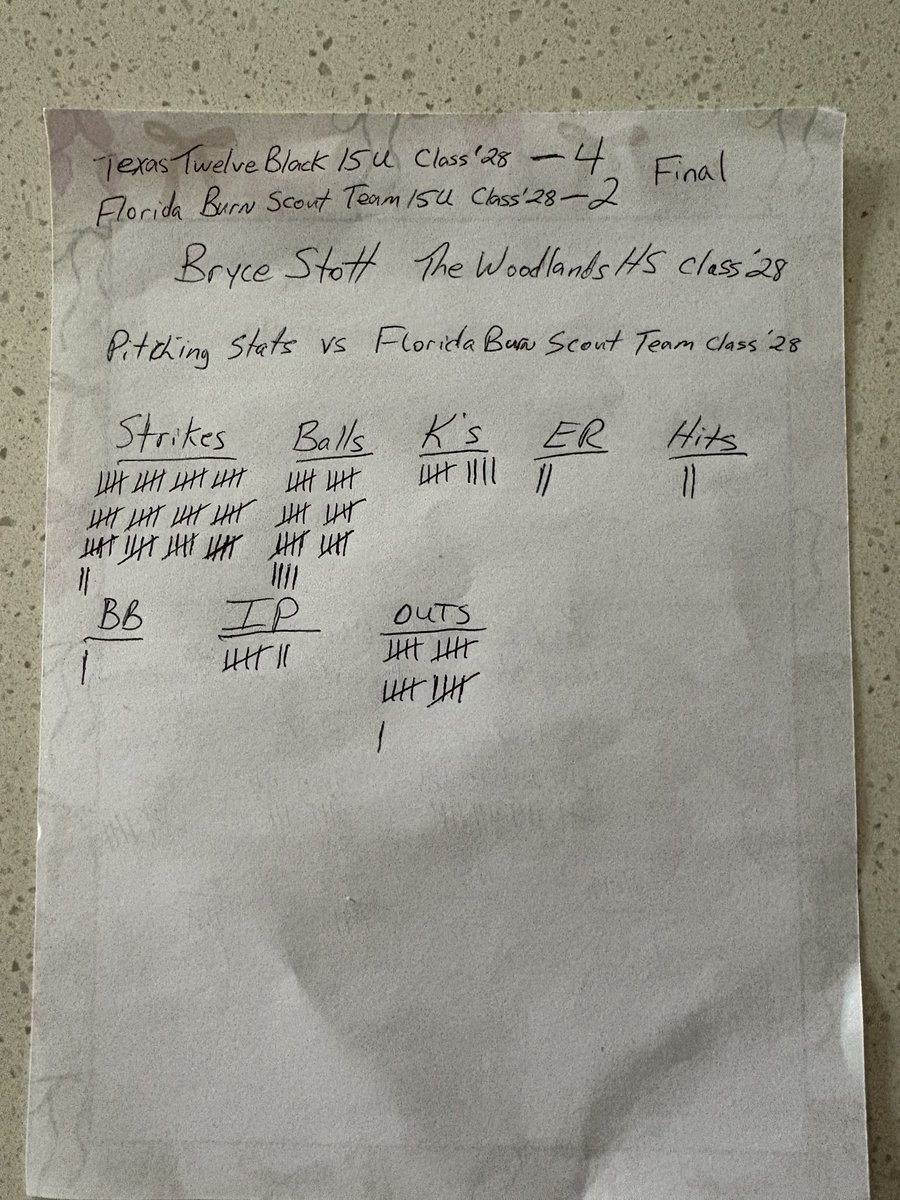 Texas Twelve Black 15U Class '28 — 4 Final
Florida Burn Scout Team 15U Class '28 — 2
Bryce Stott The Woodlands HS Class '28
Pitching Stats vs Florida Burn Scout Team Class '28
Strikes Balls K's ER Hits
卌 卌 卌 卌 卌 卌 卌 |||| || ||
卌 卌 卌 卌 卌 卌
卌 卌 卌 卌 卌 卌
|| ||||
BB IP OUTS
| 卌 || 卌 卌
卌 卌
|